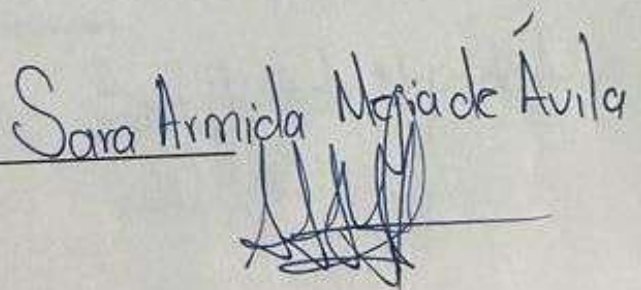 Sara Armida Mejia de Ávila